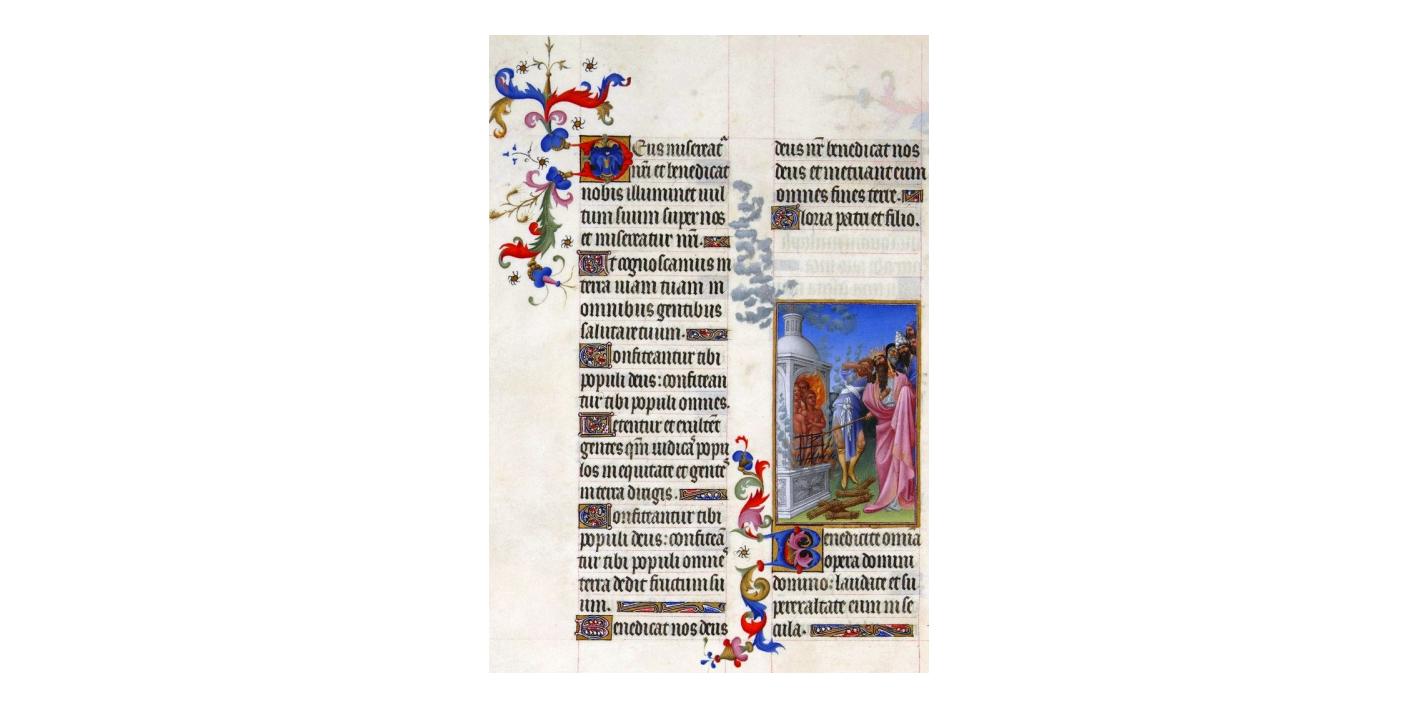 Deus misereat᷑
nr̄i et benedicat
nobis illuminet uul
tum suum super nos
et misereatur nr̄i.
Ut cognoscamus in
terra uiam tuam in
omnibus gentibus
salutare tuum.
Confiteantur tibi
populi deus: confitean
tur tibi populi omnes.
Letentur et exultēt
gentes qm̄ iudica᷑ popu
los in equitate et gente᷑
in terra dirigis.
Confiteantur tibi
populi deus: confiteā
tur tibi populi omne᷑
terra dedit fructum su
um.
Benedicat nos deus
deus nr̄ benedicat nos
deus et metuant eum
omnes fines terre.
Gloria patri et filio.
Benedicite omnia
opera domini
domino: laudate et su
perexaltate eum in se
cula.